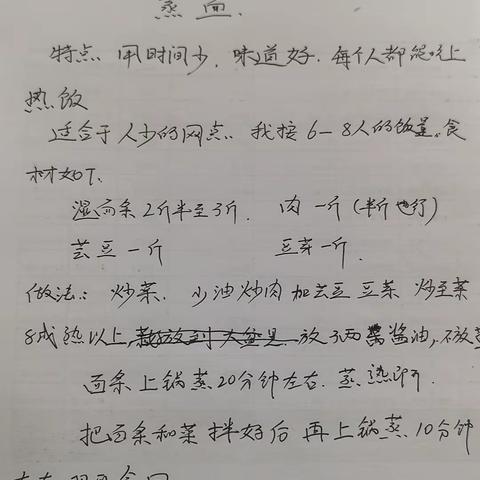 蒸面
特点 用时间少. 味道好. 每个人都能吃上
热饭
适合于人少的网点. 我按6-8人的饭量. 食
材如下.
湿面条2斤半至3斤. 肉一斤(半斤也行)
芸豆一斤 豆芽一斤.
做法: 炒菜. 少油炒肉加芸豆豆菜 炒至菜
8成熟以上, 放到大盆里. 放3两酱油, 不放
面条上锅蒸20分钟左右. 蒸熟即可.
把面条和菜拌好后再上锅蒸10分钟